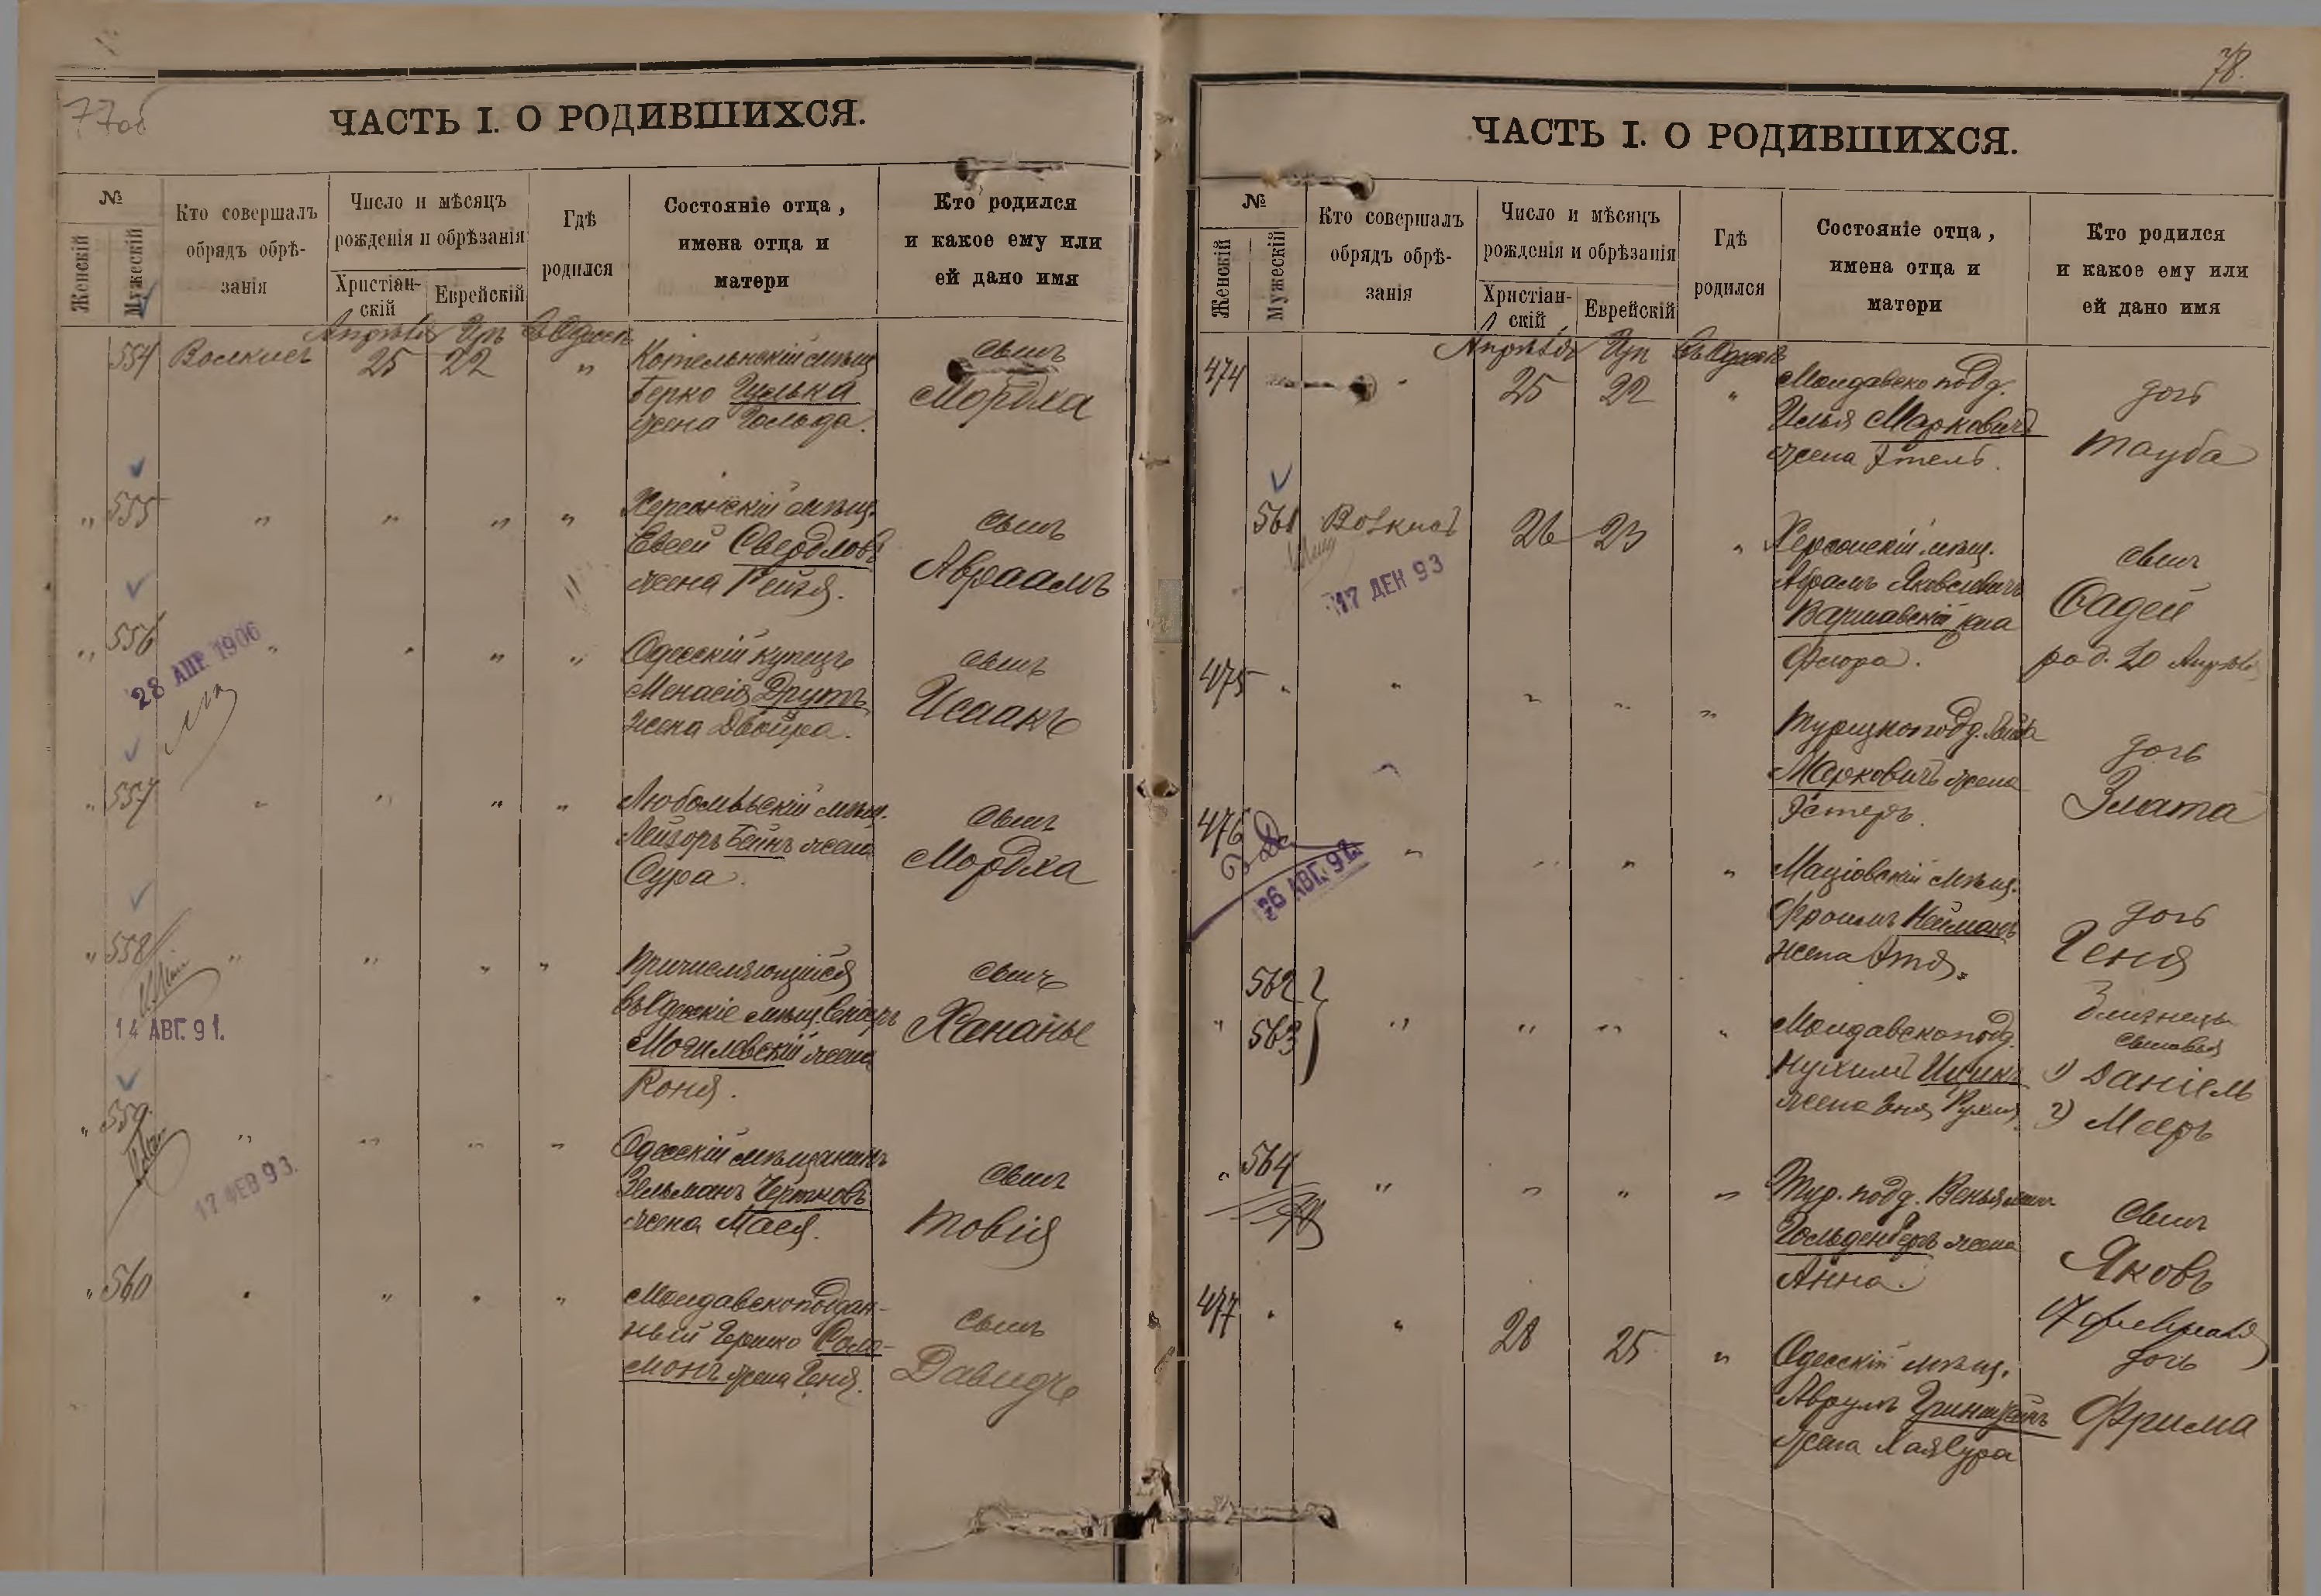 77об
ЧАСТЬ I. О РОДИВШИХСЯ.
№
Женскій
Мужескій
Кто совершалъ
обрядъ обрѣ-
занія
Число и мѣсяцъ
рожденія и обрѣзанія
Христіан-
скій
Еврейскій
Гдѣ
родился
Состояніе отца,
имена отца и
матери
Кто родился
и какое ему или
ей дано имя
Апрѣля Іяръ Въ Одессѣ
554 Волкисъ 25 22 "
Котельнскій мѣщ.
Берко Гулька
жена Гольда.
сынъ
Мордха
" 555 " " " "
Херсонскій мѣщ.
Евсей Свердловъ
жена Рейзя.
сынъ
Авраамъ
" 556 " " " "
28 АПР 1906
Одесскій купецъ
Менасія Друтъ
жена Двойра.
сынъ
Исаакъ
" 557 " " " "
Любомльскій мѣщ.
Лейзоръ Бейнъ жена
Сура.
сынъ
Мордха
" 558 " " " "
14 АВГ. 91.
Причисляющійся
въ Одесскіе мѣщ.
Могилевскій жена
Коня.
сынъ
Хананье
" 559. " " " "
17 ФЕВ 93.
Одесскій мѣщанинъ
Зельманъ Чертковъ
жена Мася.
сынъ
Товія
" 560 " " " "
Молдавскоподдан-
ный Гершко Соло-
монъ жена Геня.
сынъ
Давидъ
78.
ЧАСТЬ I. О РОДИВШИХСЯ.
№
Женскій
Мужескій
Кто совершалъ
обрядъ обрѣ-
занія
Число и мѣсяцъ
рожденія и обрѣзанія
Христіан-
скій
Еврейскій
Гдѣ
родился
Состояніе отца,
имена отца и
матери
Кто родился
и какое ему или
ей дано имя
Апрѣля Іяр Въ Одессѣ
474 " 25 22 "
Молдавско подд.
Илья Марковичъ
жена Этель.
дочь
Тауба
561 Волкисъ 26 23 "
17 ДЕК 93
Херсонскій мѣщ.
Абрамъ Яковлевичъ
Варшавскій жена
Флора.
сынъ
Фадей
род. 20 Апрѣля
475 " " " " "
Турецкоподд.
Марковичъ жена
Эстеръ.
дочь
Злата
476 " " " "
26 АВГ. 92.
Маціовскій мѣщ.
Фроимъ Нейманъ
жена Этя.
дочь
Геня
562
" 563 " " " "
Молдавскоподд.
Нухимъ Ицикъ
жена Эня Рухля.
Близнецы
сыновья
1) Даніель
2) Мееръ
" 564 " " " "
Тур. подд. Веньямин
Гольденбергъ жена
Анна.
сынъ
Яковъ
17 февраля
477 " " 28 25 "
Одесскій мѣщ.
Аврумъ Гринштейнъ
жена Хая Сура
дочь
Фрима